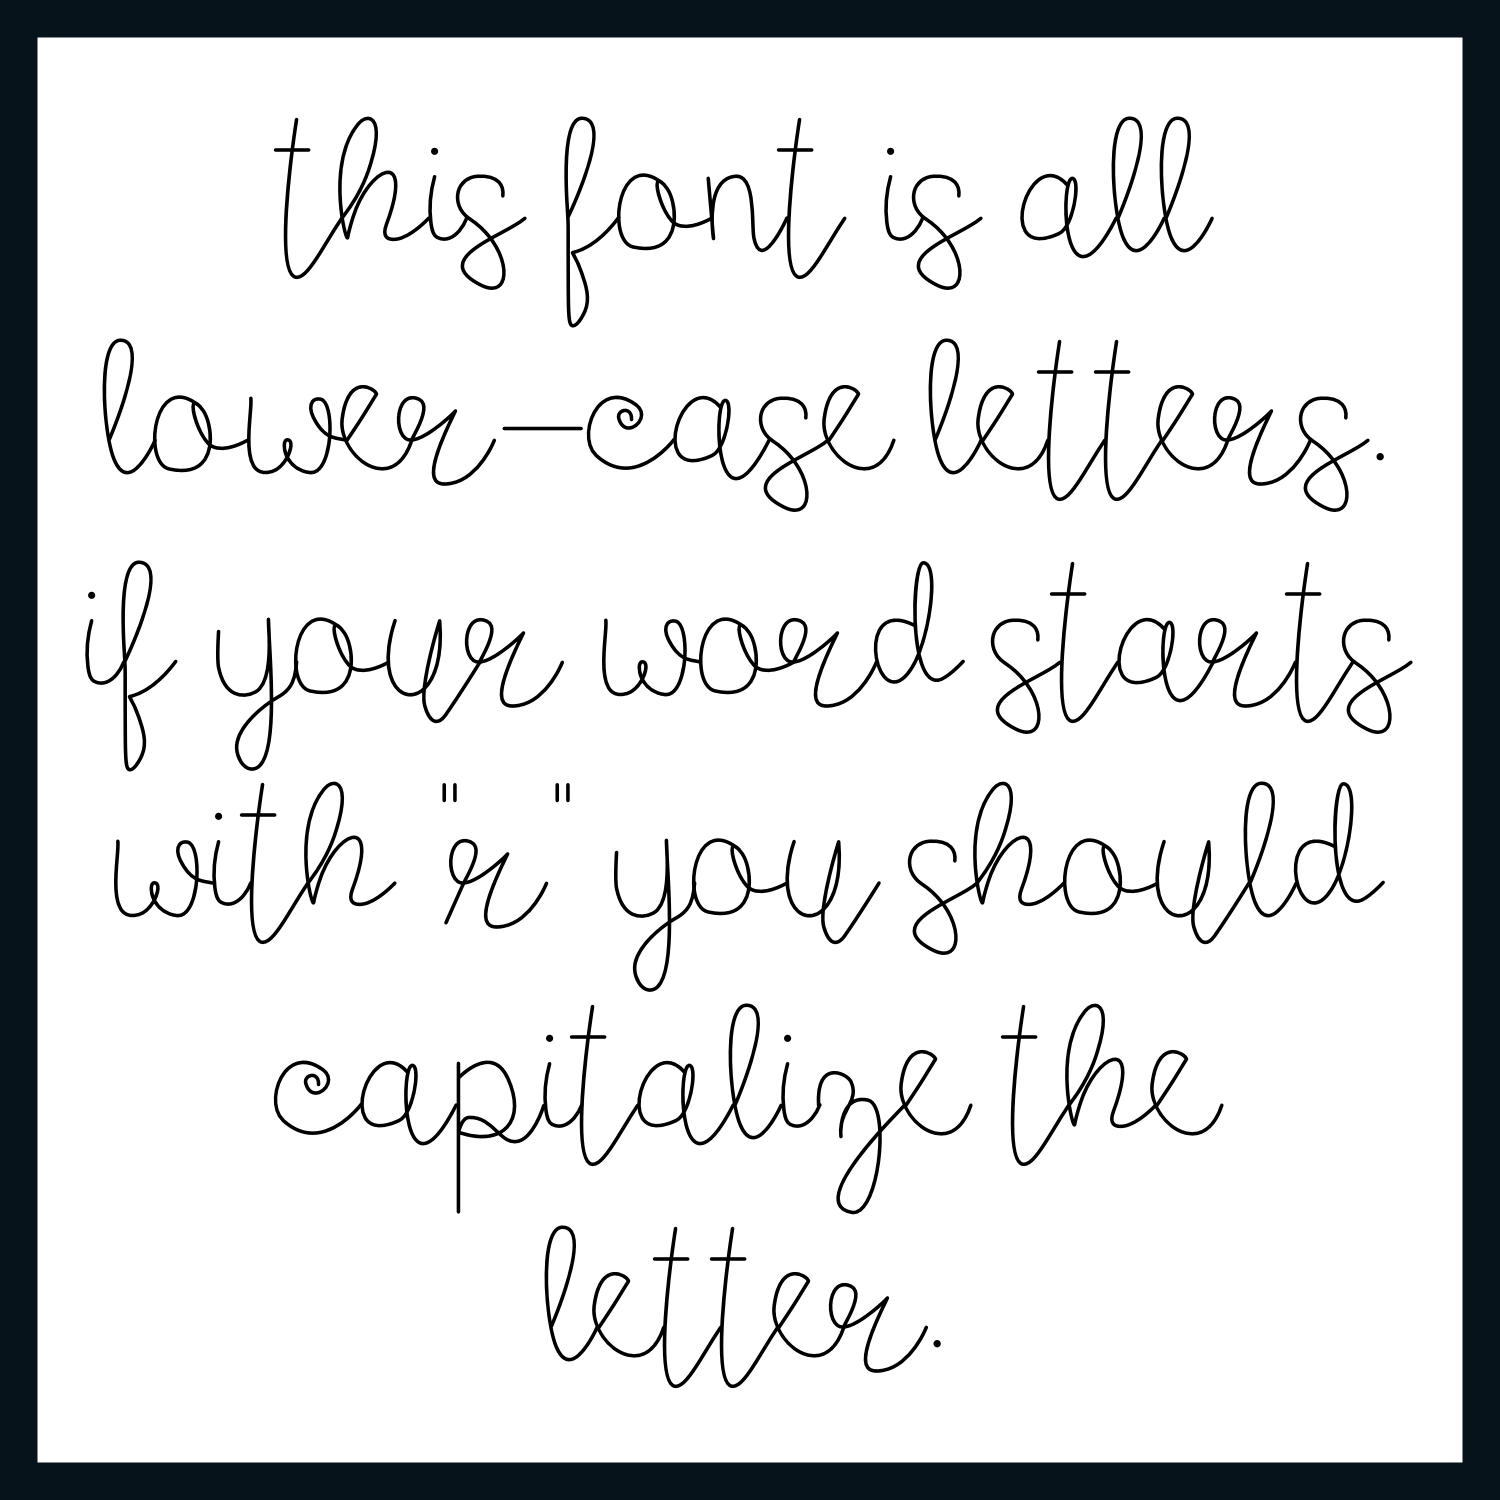 this font is all
lower-case letters.
if your word starts
with "r" you should
capitalize the
letter.